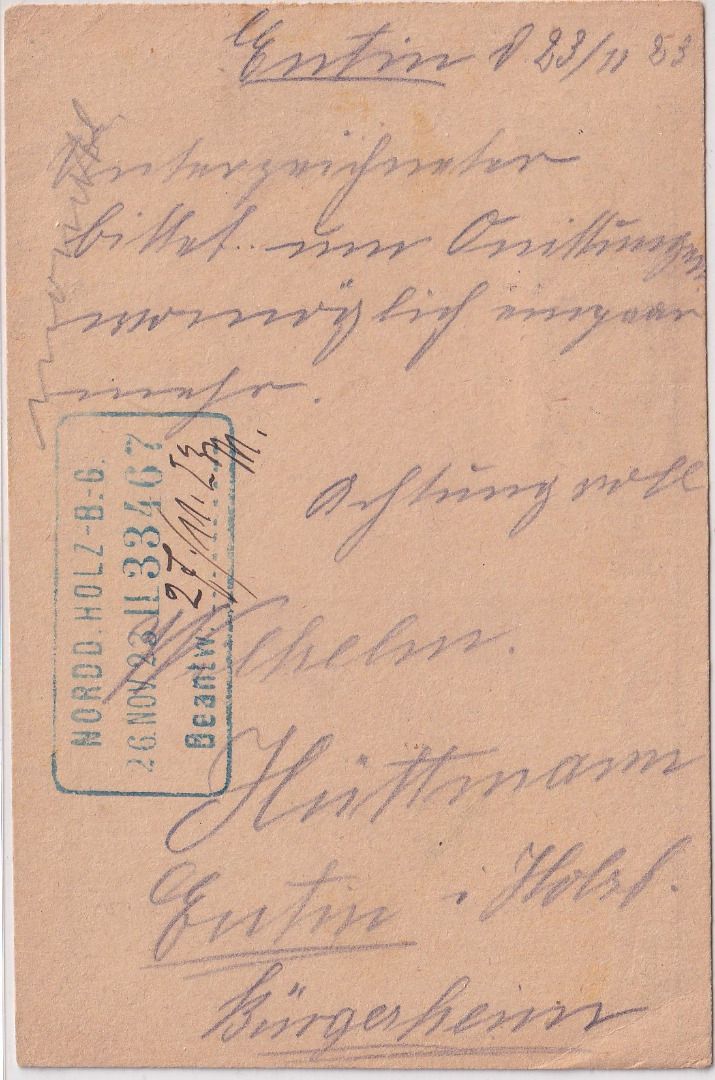 Eutin d 23/11 23
Unterzeichneter
bittet um Quittungen
womöglich einpaar
mehr.
Achtungvoll
Wilhelm.
Hüttmann
Eutin i Holst.
Bürgerheim
NORDD. HOLZ-B-G.
26.NOV.23 II 33467
Beantw.
27/11.23